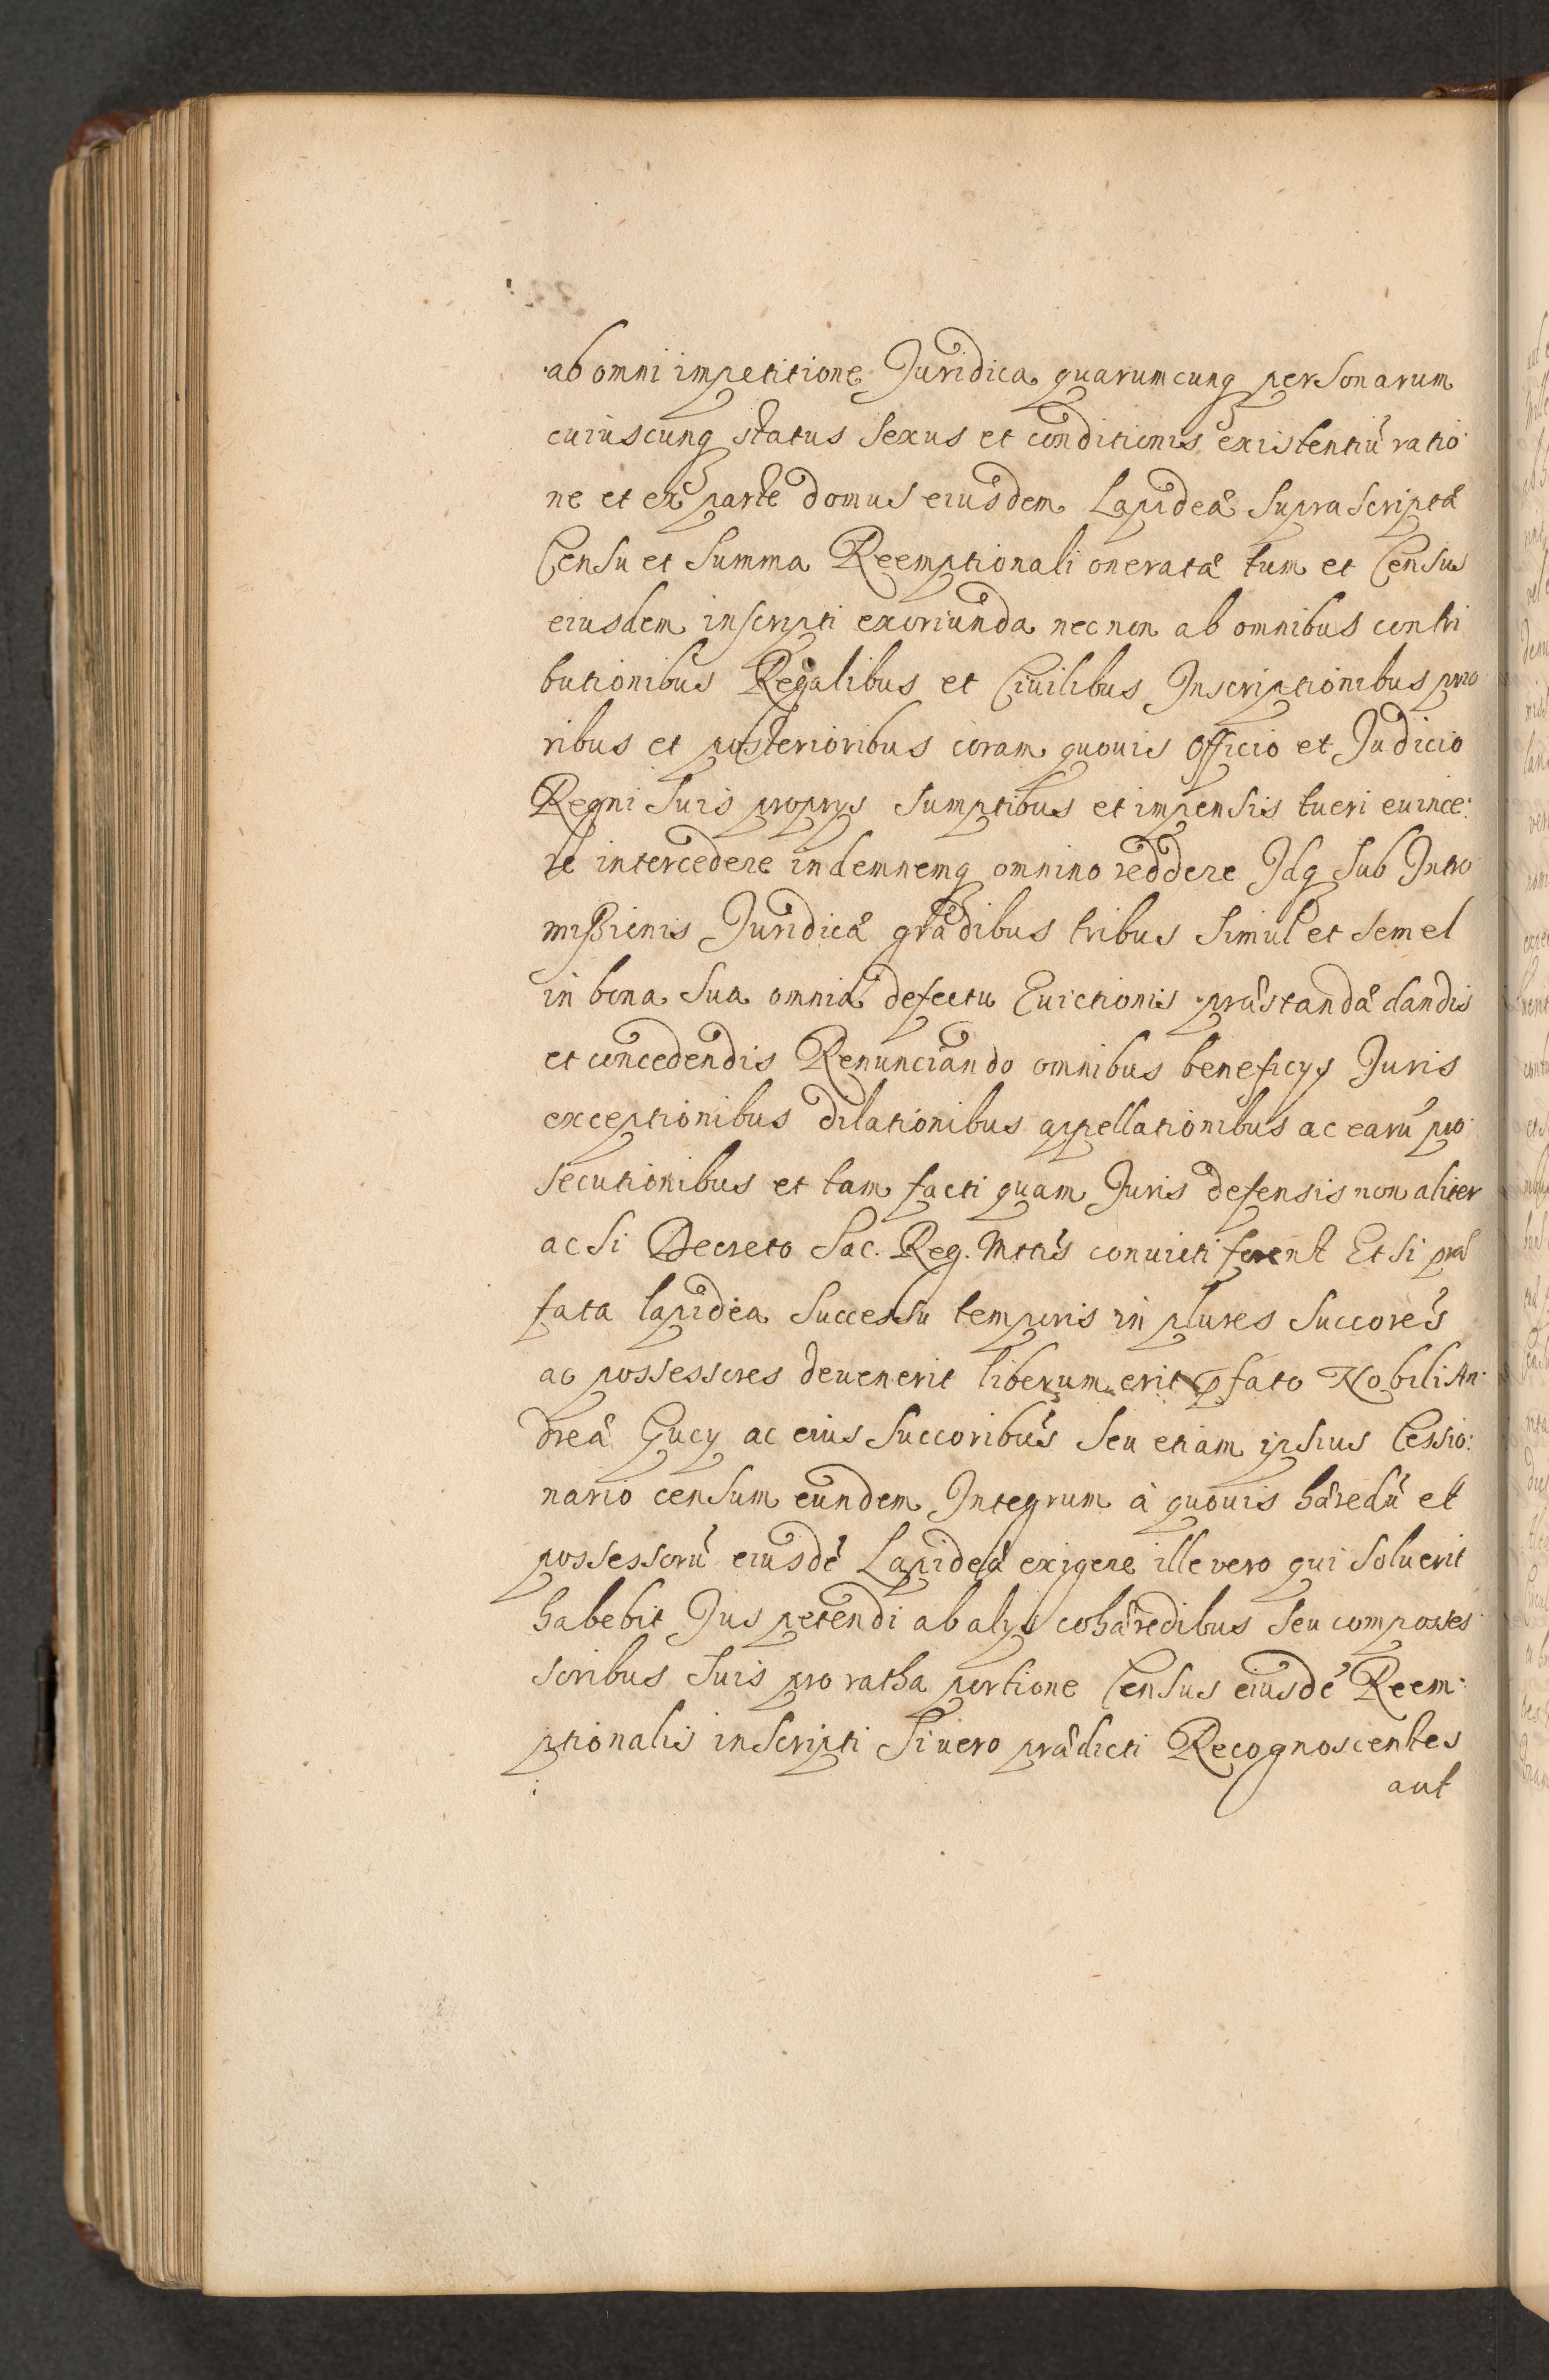 ab omni impetitione Juridica quarumcunq personarum
cuiuscunq status sexus et conditionis existentiũ ratio
ne et ex parte domus eiusdem Lapideæ supra scriptæ
Censu et summa Reemptionali oneratæ tum et Census
eiusdem inscripti exoriunda nec non ab omnibus contri
butionibus Regalibus et Ciuilibus Inscriptionibus prio
ribus et posterioribus coram quouis officio et Judicio
Regni suis proprys sumptibus et impensis tueri euince:
re intercedere indemnemq omnino reddere Idq sub Intro
mißionis Juridicæ gradibus tribus simul et semel
in bona sua omnia defectu Euictionis præstandæ dandis
et concedendis Renunciando omnibus beneficys Juris
exceptionibus dilationibus appellationibus ac earũ pro:
secutionibus et tam facti quam Juris defensis non aliter
ac si Decreto Sac. Reg. Mttis conuicti forent Et si præ
fata lapidea successu temporis in plures Succores
ac possessores deuenerit liberum erit pfato Nobili An:
dreæ Gucy ac eius Succoribus seu etiam ipsius Cessio:
nario censum eundem Integrum à quouis hæredũ et
possessorũ eiusdẽ Lapideæ exigere ille vero qui soluerit
habebit Jus petendi ab alys cohæredibus seu composses
soribus suis pro ratha portione Census eiusdẽ Reem:
ptionalis inscripti Si uero prædicti Recognoscentes
aut